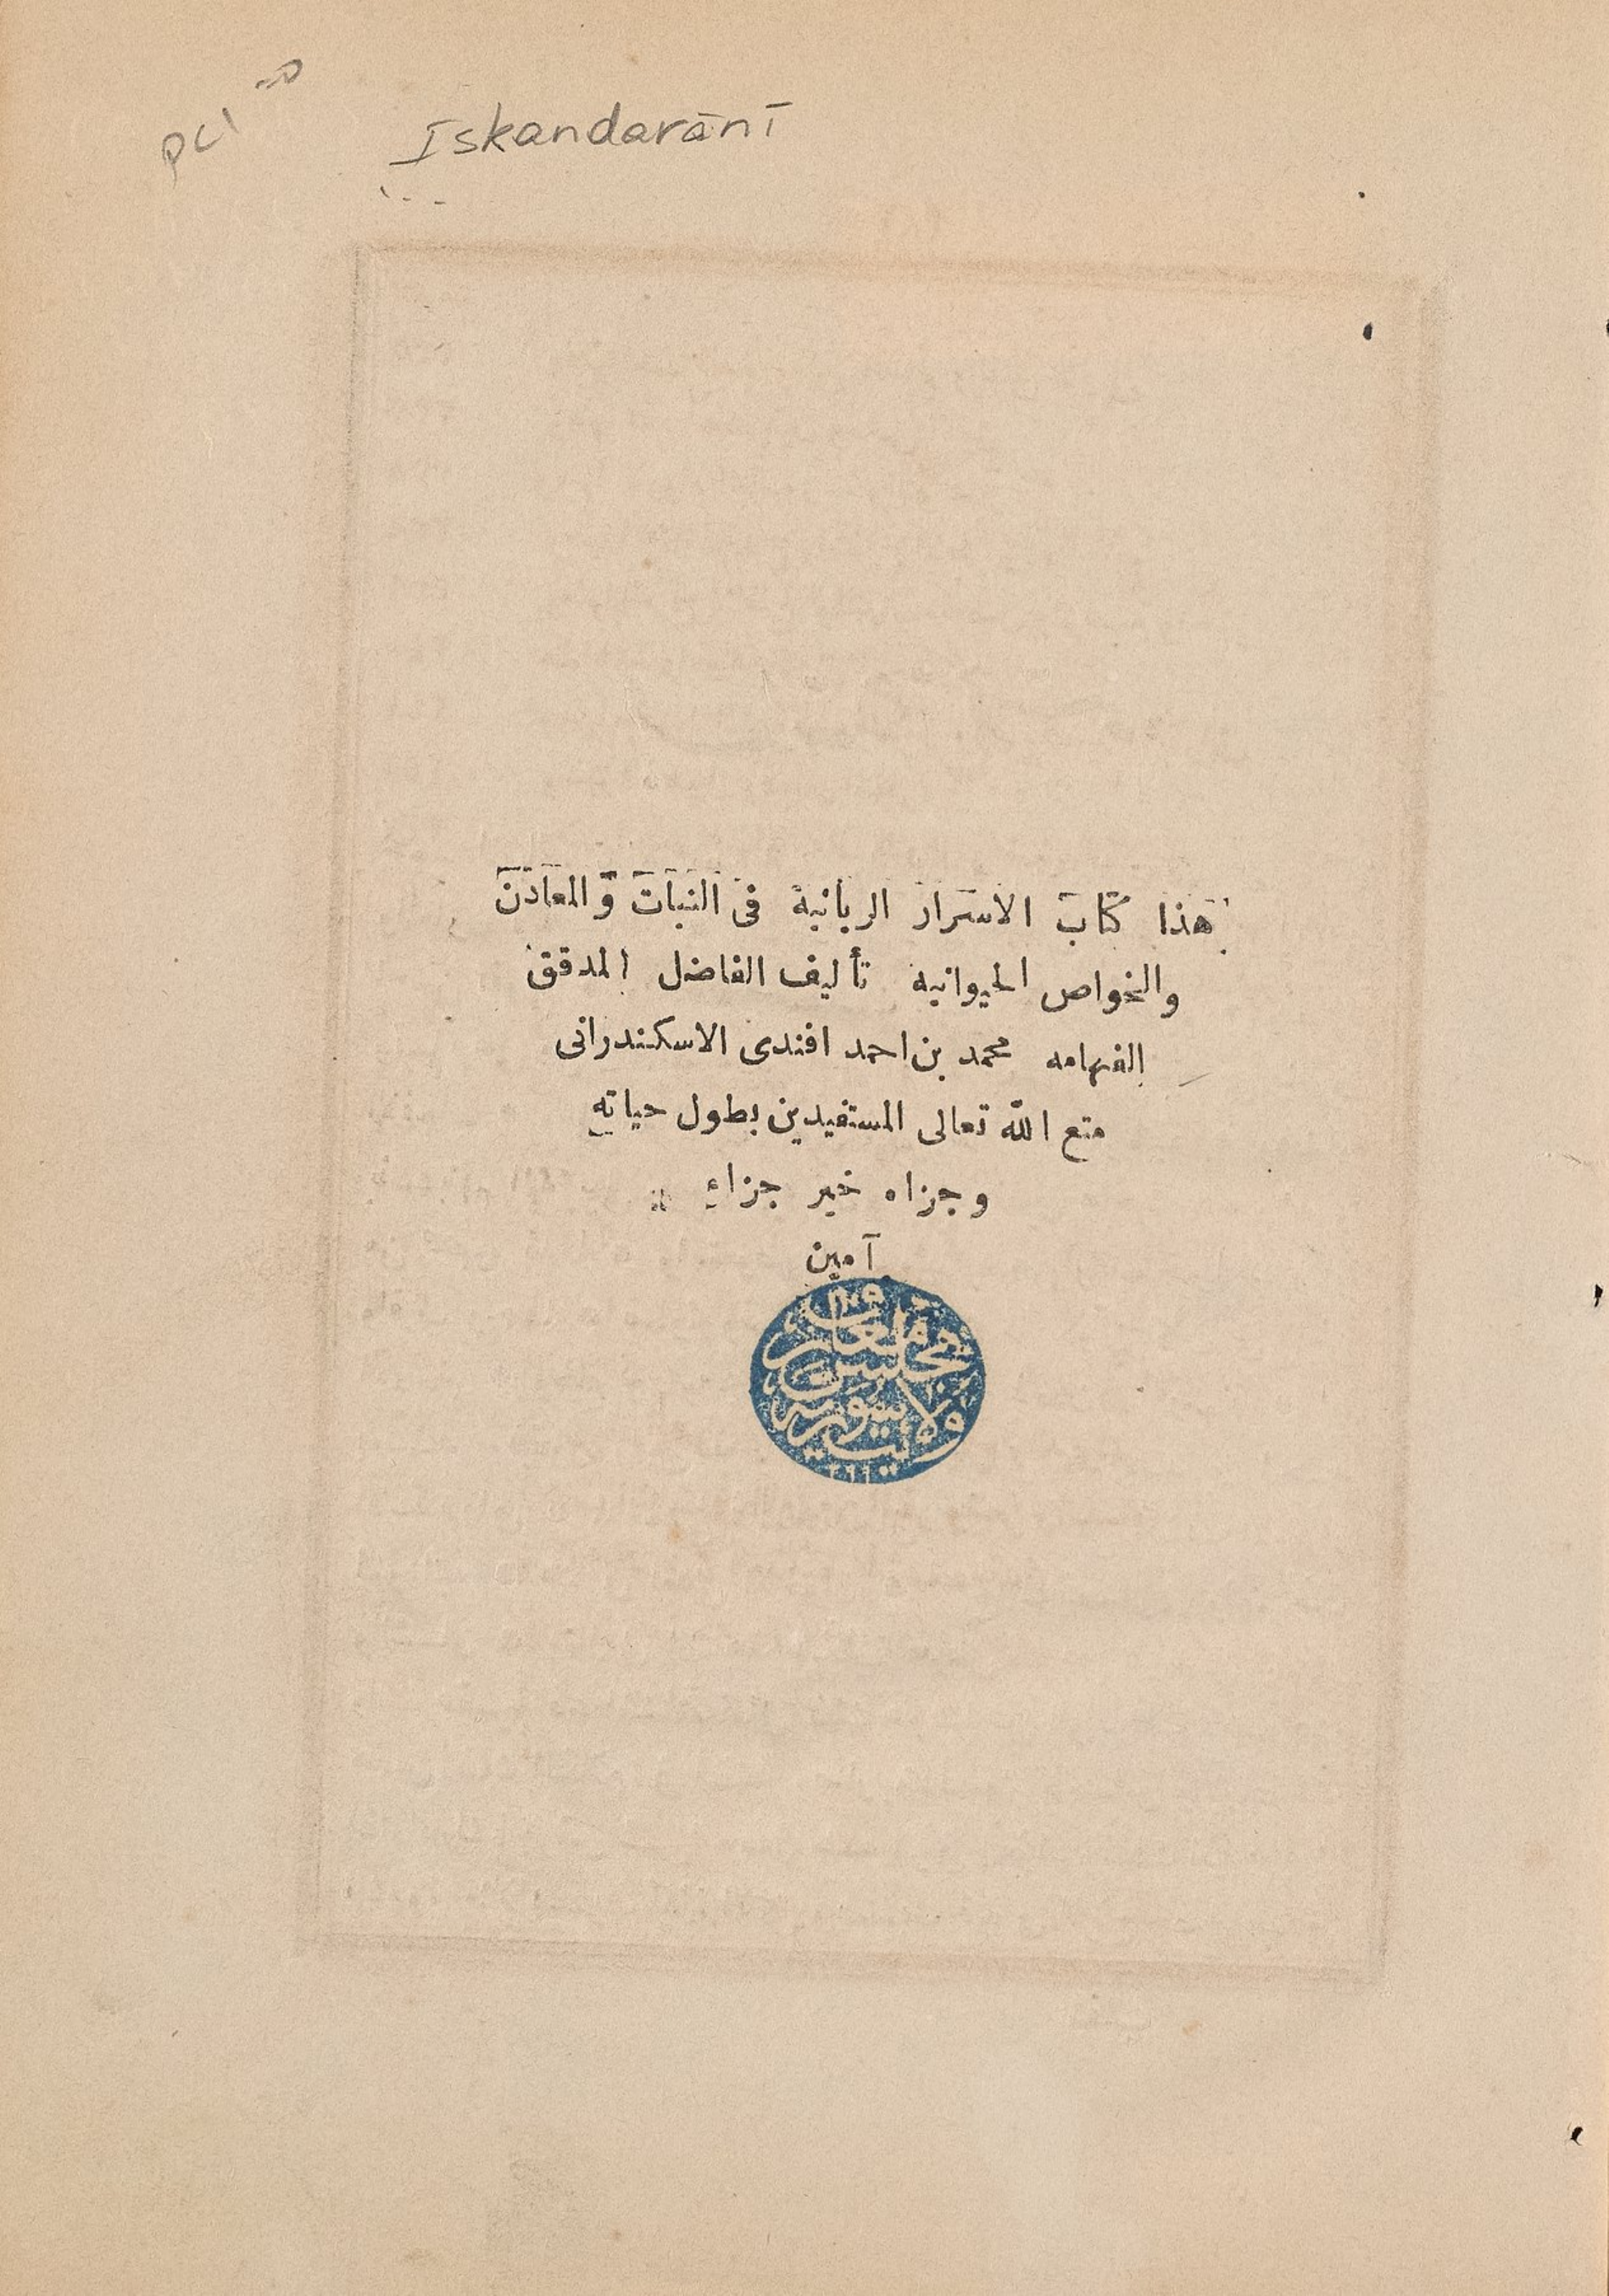 Iskandarānī
هذا كتاب الاسرار الربانية فى النبات والمعادن
والخواص الحيوانيه تأليف الفاضل المدقق
الفهامه محمد بن احمد افندى الاسكندرانى
متع الله تعالى المستفيدين بطول حياته
وجزاه خير جزاء
آمين
مجلس معارف
ولايت سوريه